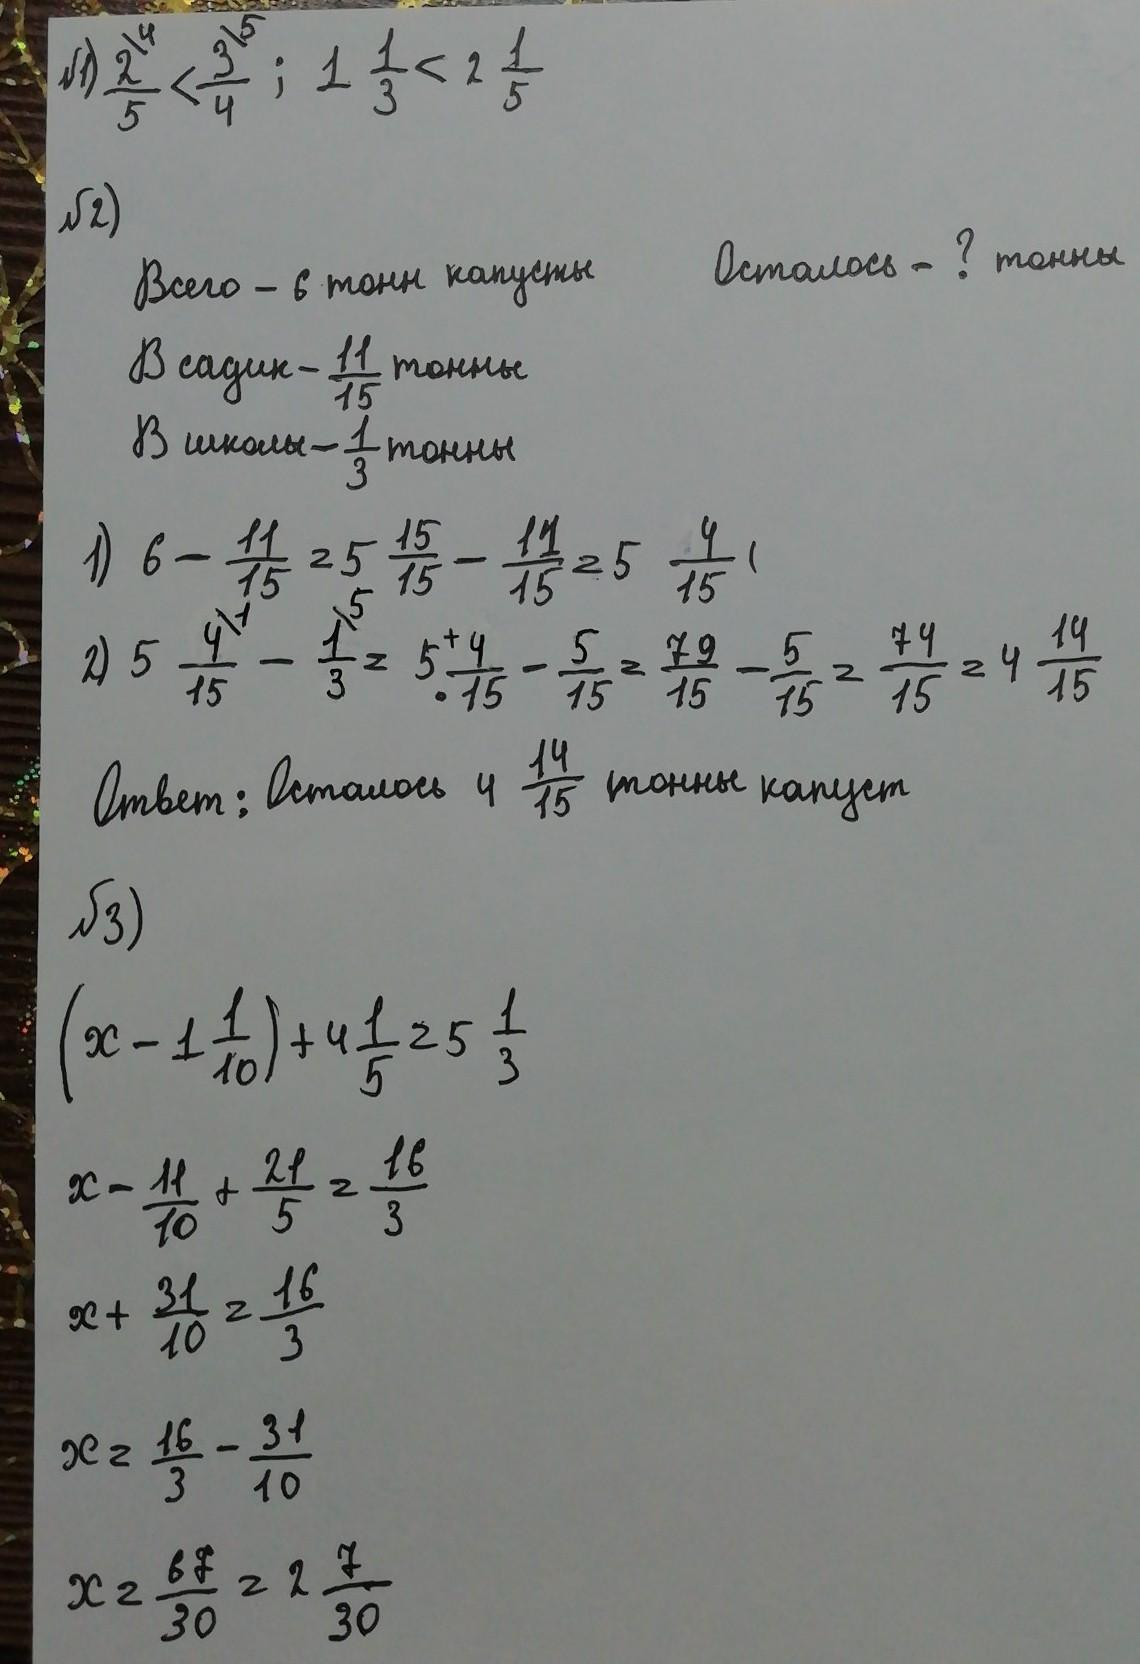 №1) 2\4/5 < 3\5/4 ; 1 1/3 < 2 1/5
№2)
Всего – 6 тонн капусты Осталось – ? тонны
В садик – 11/15 тонны
В школы – 1/3 тонны
1) 6 – 11/15 = 5 15/15 – 11/15 = 5 4/15 (
2) 5 4\1/15 – 1\5/3 = 5 + 4/·15 – 5/15 = 79/15 – 5/15 = 74/15 = 4 14/15
Ответ: Осталось 4 14/15 тонны капуст
№3)
(x – 1 1/10) + 4 1/5 = 5 1/3
x – 11/10 + 21/5 = 16/3
x + 31/10 = 16/3
x = 16/3 – 31/10
x = 67/30 = 2 7/30